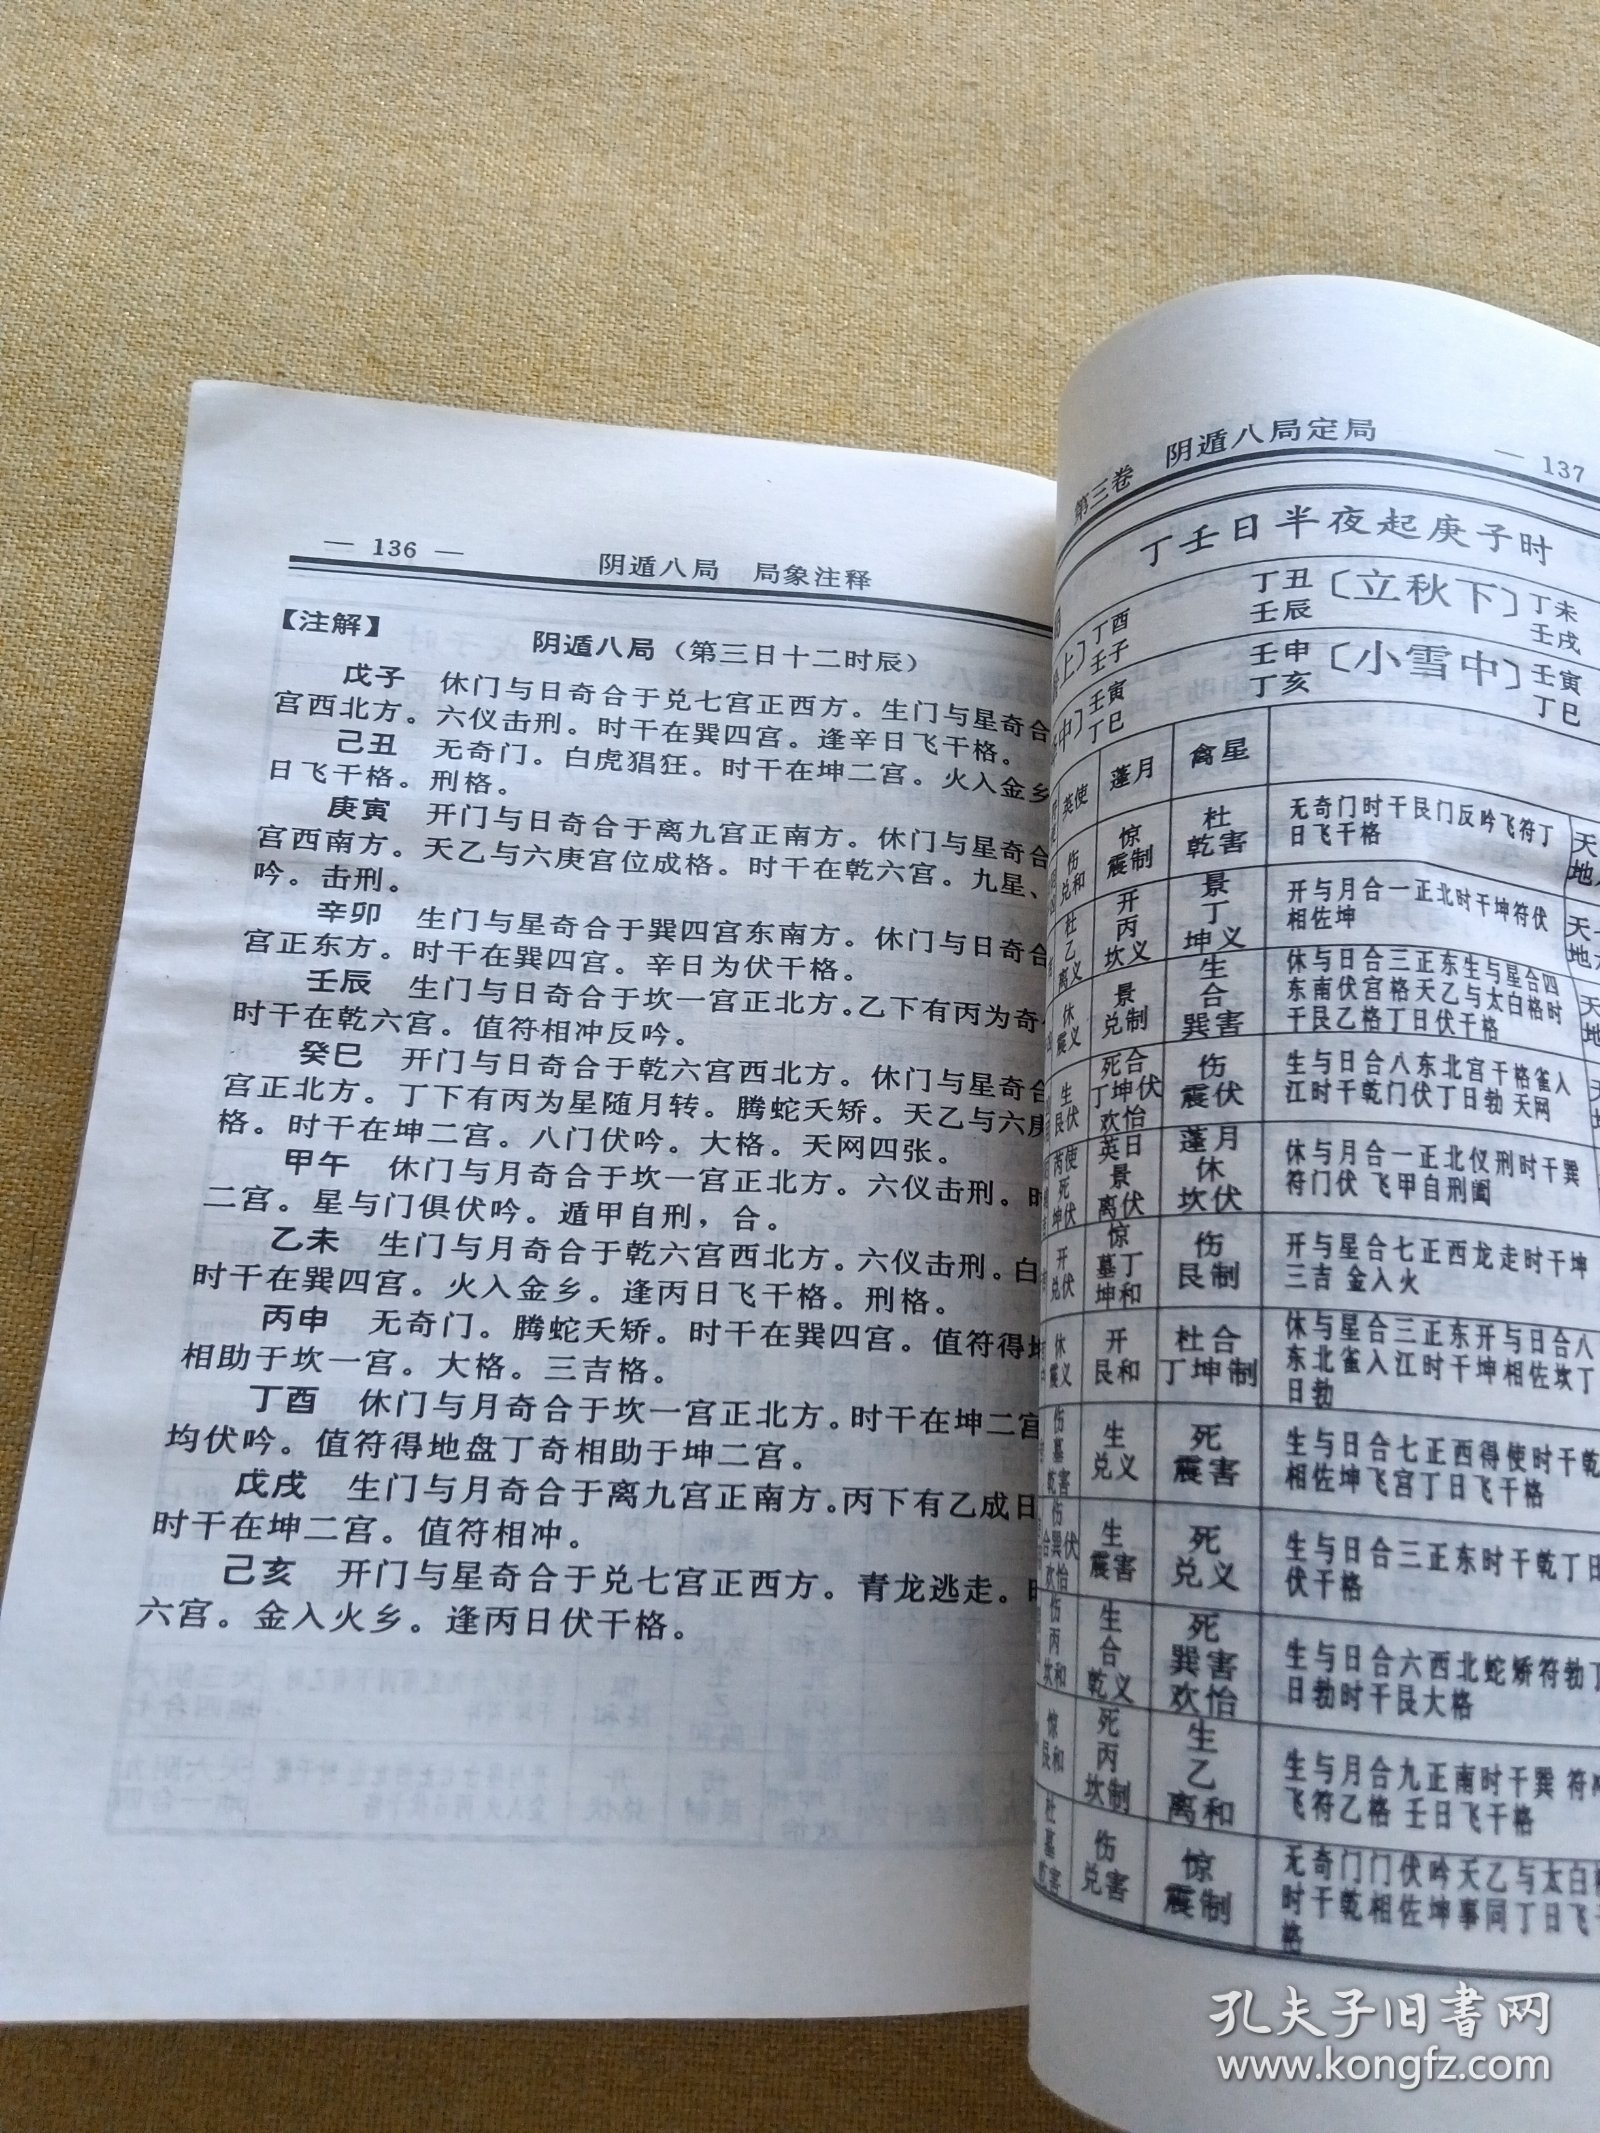 — 136 —
阴遁八局 局象注释
【注解】
阴遁八局（第三日十二时辰）
戊子 休门与日奇合于兑七宫正西方。生门与星奇合
宫西北方。六仪击刑。时干在巽四宫。逢辛日飞干格。
己丑 无奇门。白虎猖狂。时干在坤二宫。火入金乡
日飞干格。刑格。
庚寅 开门与日奇合于离九宫正南方。休门与星奇合
宫西南方。天乙与六庚宫位成格。时干在乾六宫。九星、
吟。击刑。
辛卯 生门与星奇合于巽四宫东南方。休门与日奇合
宫正东方。时干在巽四宫。辛日为伏干格。
壬辰 生门与日奇合于坎一宫正北方。乙下有丙为奇
时干在乾六宫。值符相冲反吟。
癸巳 开门与日奇合于乾六宫西北方。休门与星奇合
宫正北方。丁下有丙为星随月转。腾蛇夭矫。天乙与六庚
格。时干在坤二宫。八门伏吟。大格。天网四张。
甲午 休门与月奇合于坎一宫正北方。六仪击刑。时
二宫。星与门俱伏吟。遁甲自刑，合。
乙未 生门与月奇合于乾六宫西北方。六仪击刑。白
时干在巽四宫。火入金乡。逢丙日飞干格。刑格。
丙申 无奇门。腾蛇夭矫。时干在巽四宫。值符得地
相助于坎一宫。大格。三吉格。
丁酉 休门与月奇合于坎一宫正北方。时干在坤二宫
均伏吟。值符得地盘丁奇相助于坤二宫。
戊戌 生门与月奇合于离九宫正南方。丙下有乙成日
时干在坤二宫。值符相冲。
己亥 开门与星奇合于兑七宫正西方。青龙逃走。时
六宫。金入火乡。逢丙日伏干格。
第三卷 阴遁八局定局
— 137
丁壬日半夜起庚子时
上〕丁酉 壬子 丁丑 壬辰〔立秋下〕丁未 壬戌
中〕壬寅 丁巳 壬申 丁亥〔小雪中〕壬寅 丁巳
英使 蓬月 禽星
伤 兑和 惊 震制 杜 乾害 无奇门时干艮门反吟飞符丁
日飞干格
天
地
杜 乙 离义 开 丙 坎义 景 丁 坤义 开与月合一正北时干坤符伏
相佐坤
天
地
休 震义 景 兑制 生 合 巽害 休与日合三正东生与星合四
东南伏宫格天乙与太白格时
干艮乙格丁日伏干格
天
地
生 艮伏 死合 丁坤伏 欢怡 伤 震伏 生与日合八东北宫干格雀入
江时干乾门伏丁日勃 天网
丙使 死 坤伏 英日 景 离伏 蓬月 休 坎伏 休与月合一正北仪刑时干巽
符门伏 飞甲自刑阖
开 兑伏 惊 墓丁 坤和 伤 艮制 开与星合七正西龙走时干坤
三吉 金入火
休 震义 开 艮和 杜合 丁坤制 休与星合三正东开与日合八
东北雀入江时干坤相佐坎丁
日勃
伤 墓 乾害 生 兑义 死 震害 生与日合七正西得使时干乾
相佐坤飞宫丁日飞干格
伤 合巽伏 欢怡 生 震害 死 兑义 生与日合三正东时干乾丁日
伏干格
伤 丙 坎和 生 合 乾义 死 巽害 欢怡 生与日合六西北蛇矫符勃丁
日勃时干艮大格
惊 艮和 死 丙 坎制 生 乙 离和 生与月合九正南时干巽 符
飞符乙格 壬日飞干格
杜 墓 乾害 伤 兑害 惊 震制 无奇门门伏吟天乙与太白
时干乾相佐坤事同丁日飞干
格
孔夫子旧书网
www.kongfz.com